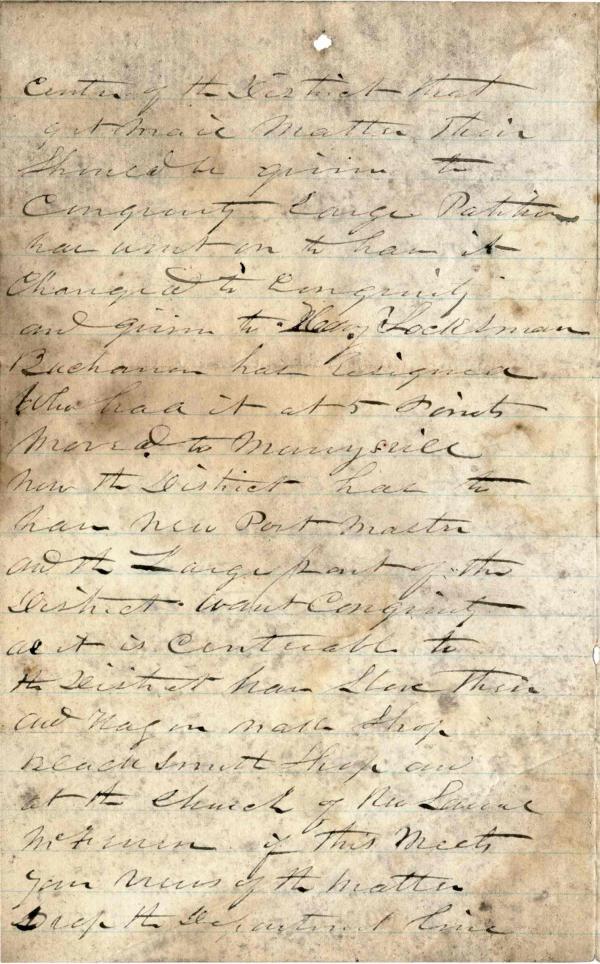 Centre of the District that
get Mail Matter Their
Should be given to
Congruity Large Patition
has went on to have it
Changed to Congruity
and given to Locksman
Buchanan has Resigned
Who had it at 5 Points
Moved to
now the District has to
have new Post Master
and the Large part of the
District Want Congruity
as it is Centerable to
the District have Store Their
and Wagon Shop
Black Smith Shop and
at the Church of Rev
if this Meets
your views of the Matter
Drop the Department line